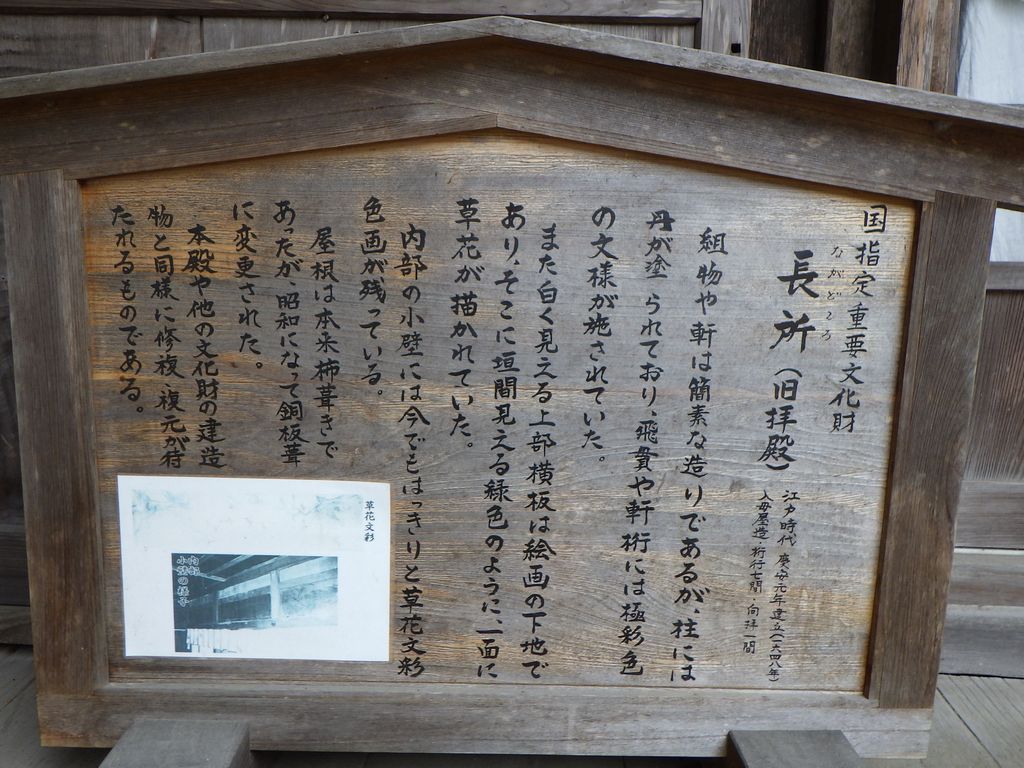 国指定重要文化財
ながどころ
長所（旧拝殿）
江戸時代 慶安元年建立（一六四八年）
入母屋造・桁行七間・向拝一間
組物や軒は簡素な造りであるが、柱には
丹が塗られており、飛貫や軒桁には極彩色
の文様が施されていた。
また白く見える上部横板は絵画の下地で
あり、そこに垣間見える緑色のように、一面に
草花が描かれていた。
内部の小壁には今でもはっきりと草花文彩
色画が残っている。
屋根は本来柿葺きで
あったが、昭和になって銅板葺
に変更された。
本殿や他の文化財の建造
物と同様に修複、複元が待
たれるものである。
草花文彩
内部
小壁の様子